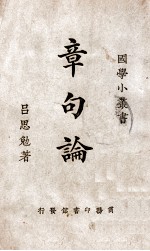 國學小叢書
章句論
呂思勉著
商務印書館發行